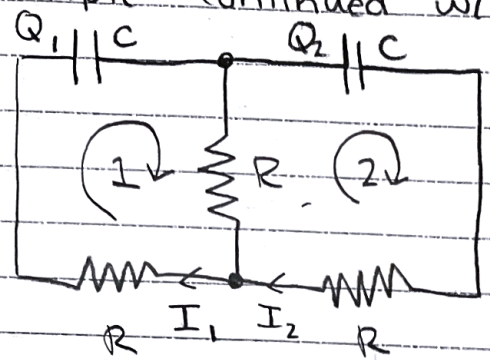 continued
Q₁ C Q₂ C
1 R 2
I₁ I₂
R R